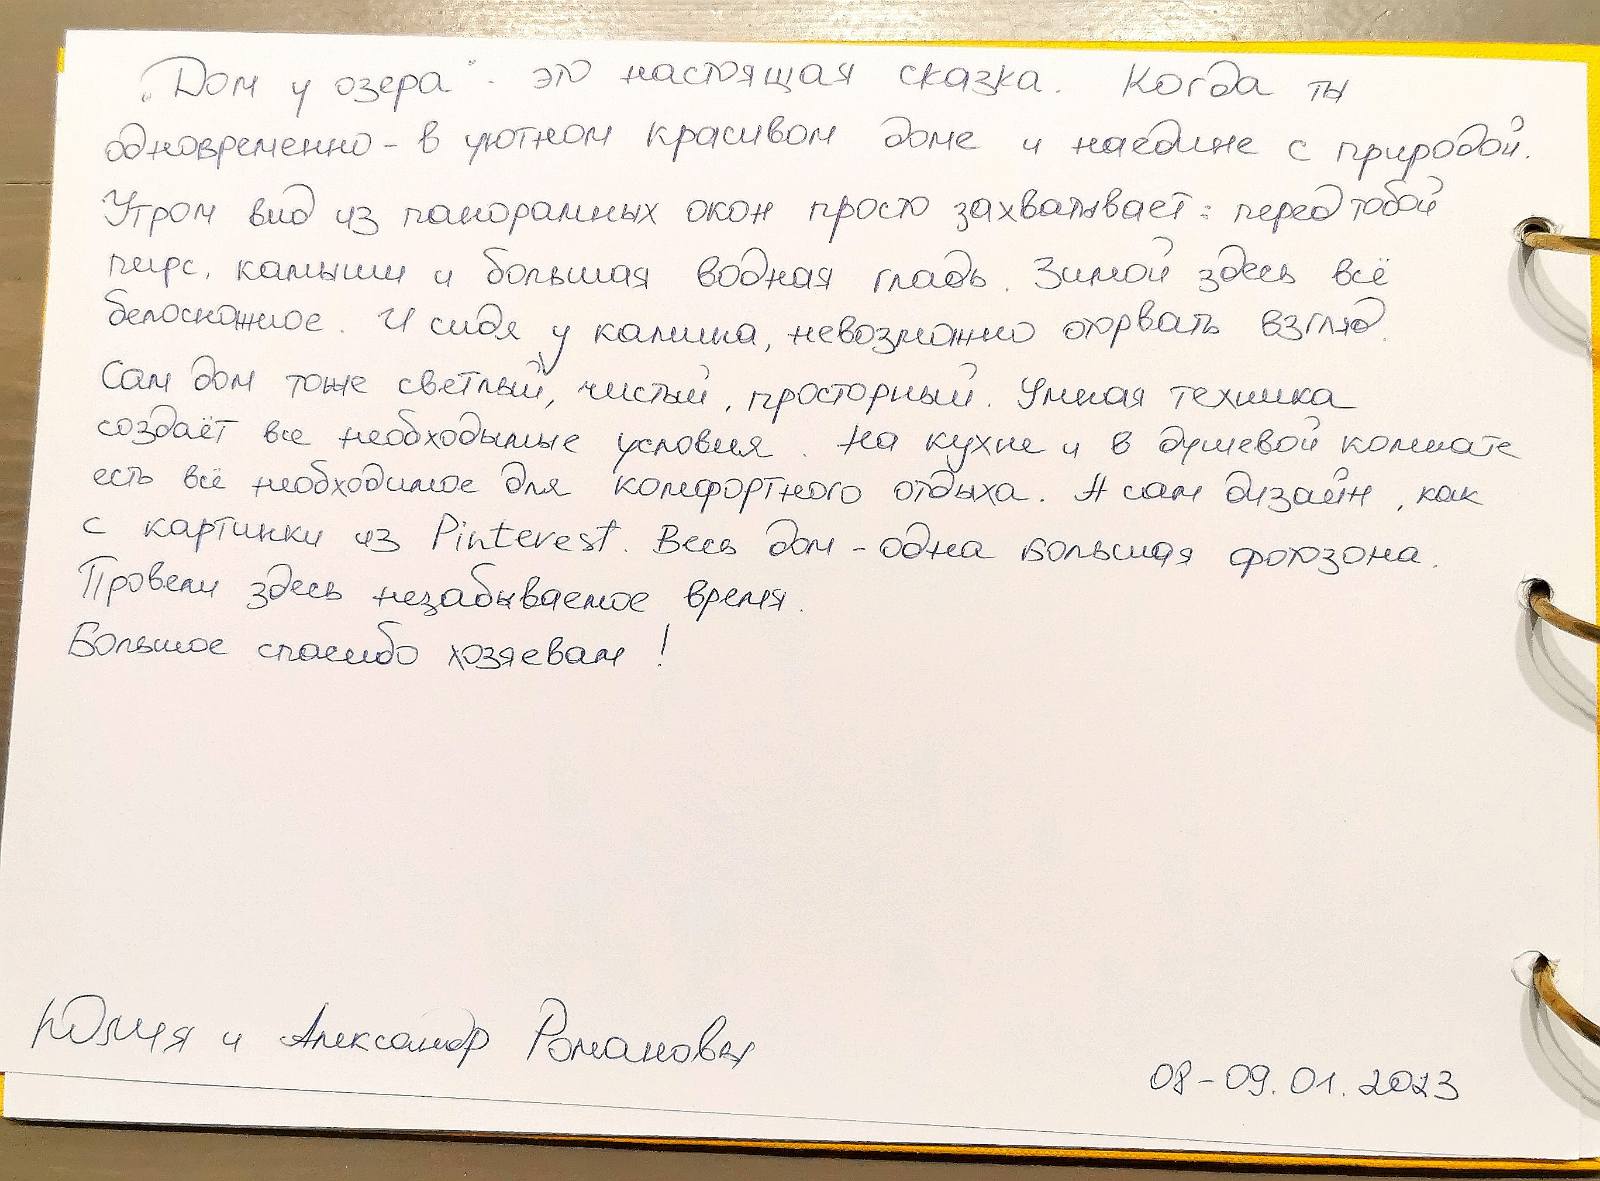 „Дом у озера" - это настоящая сказка. Когда ты
одновременно - в уютном красивом доме и наедине с природой.
Утром вид из панорамных окон просто захватывает: перед тобой
пирс, камыши и большая водная гладь. Зимой здесь всё
белоснежное. И сидя у камина, невозможно оторвать взгляд.
Сам дом тоже светлый, чистый, просторный. Умная техника
создаёт все необходимые условия. На кухне и в душевой комнате
есть всё необходимое для комфортного отдыха. А сам дизайн, как
с картинки из Pinterest. Весь дом - одна большая фотозона.
Провели здесь незабываемое время.
Большое спасибо хозяевам!
Юлия и Александр Романовы
08-09.01.2023